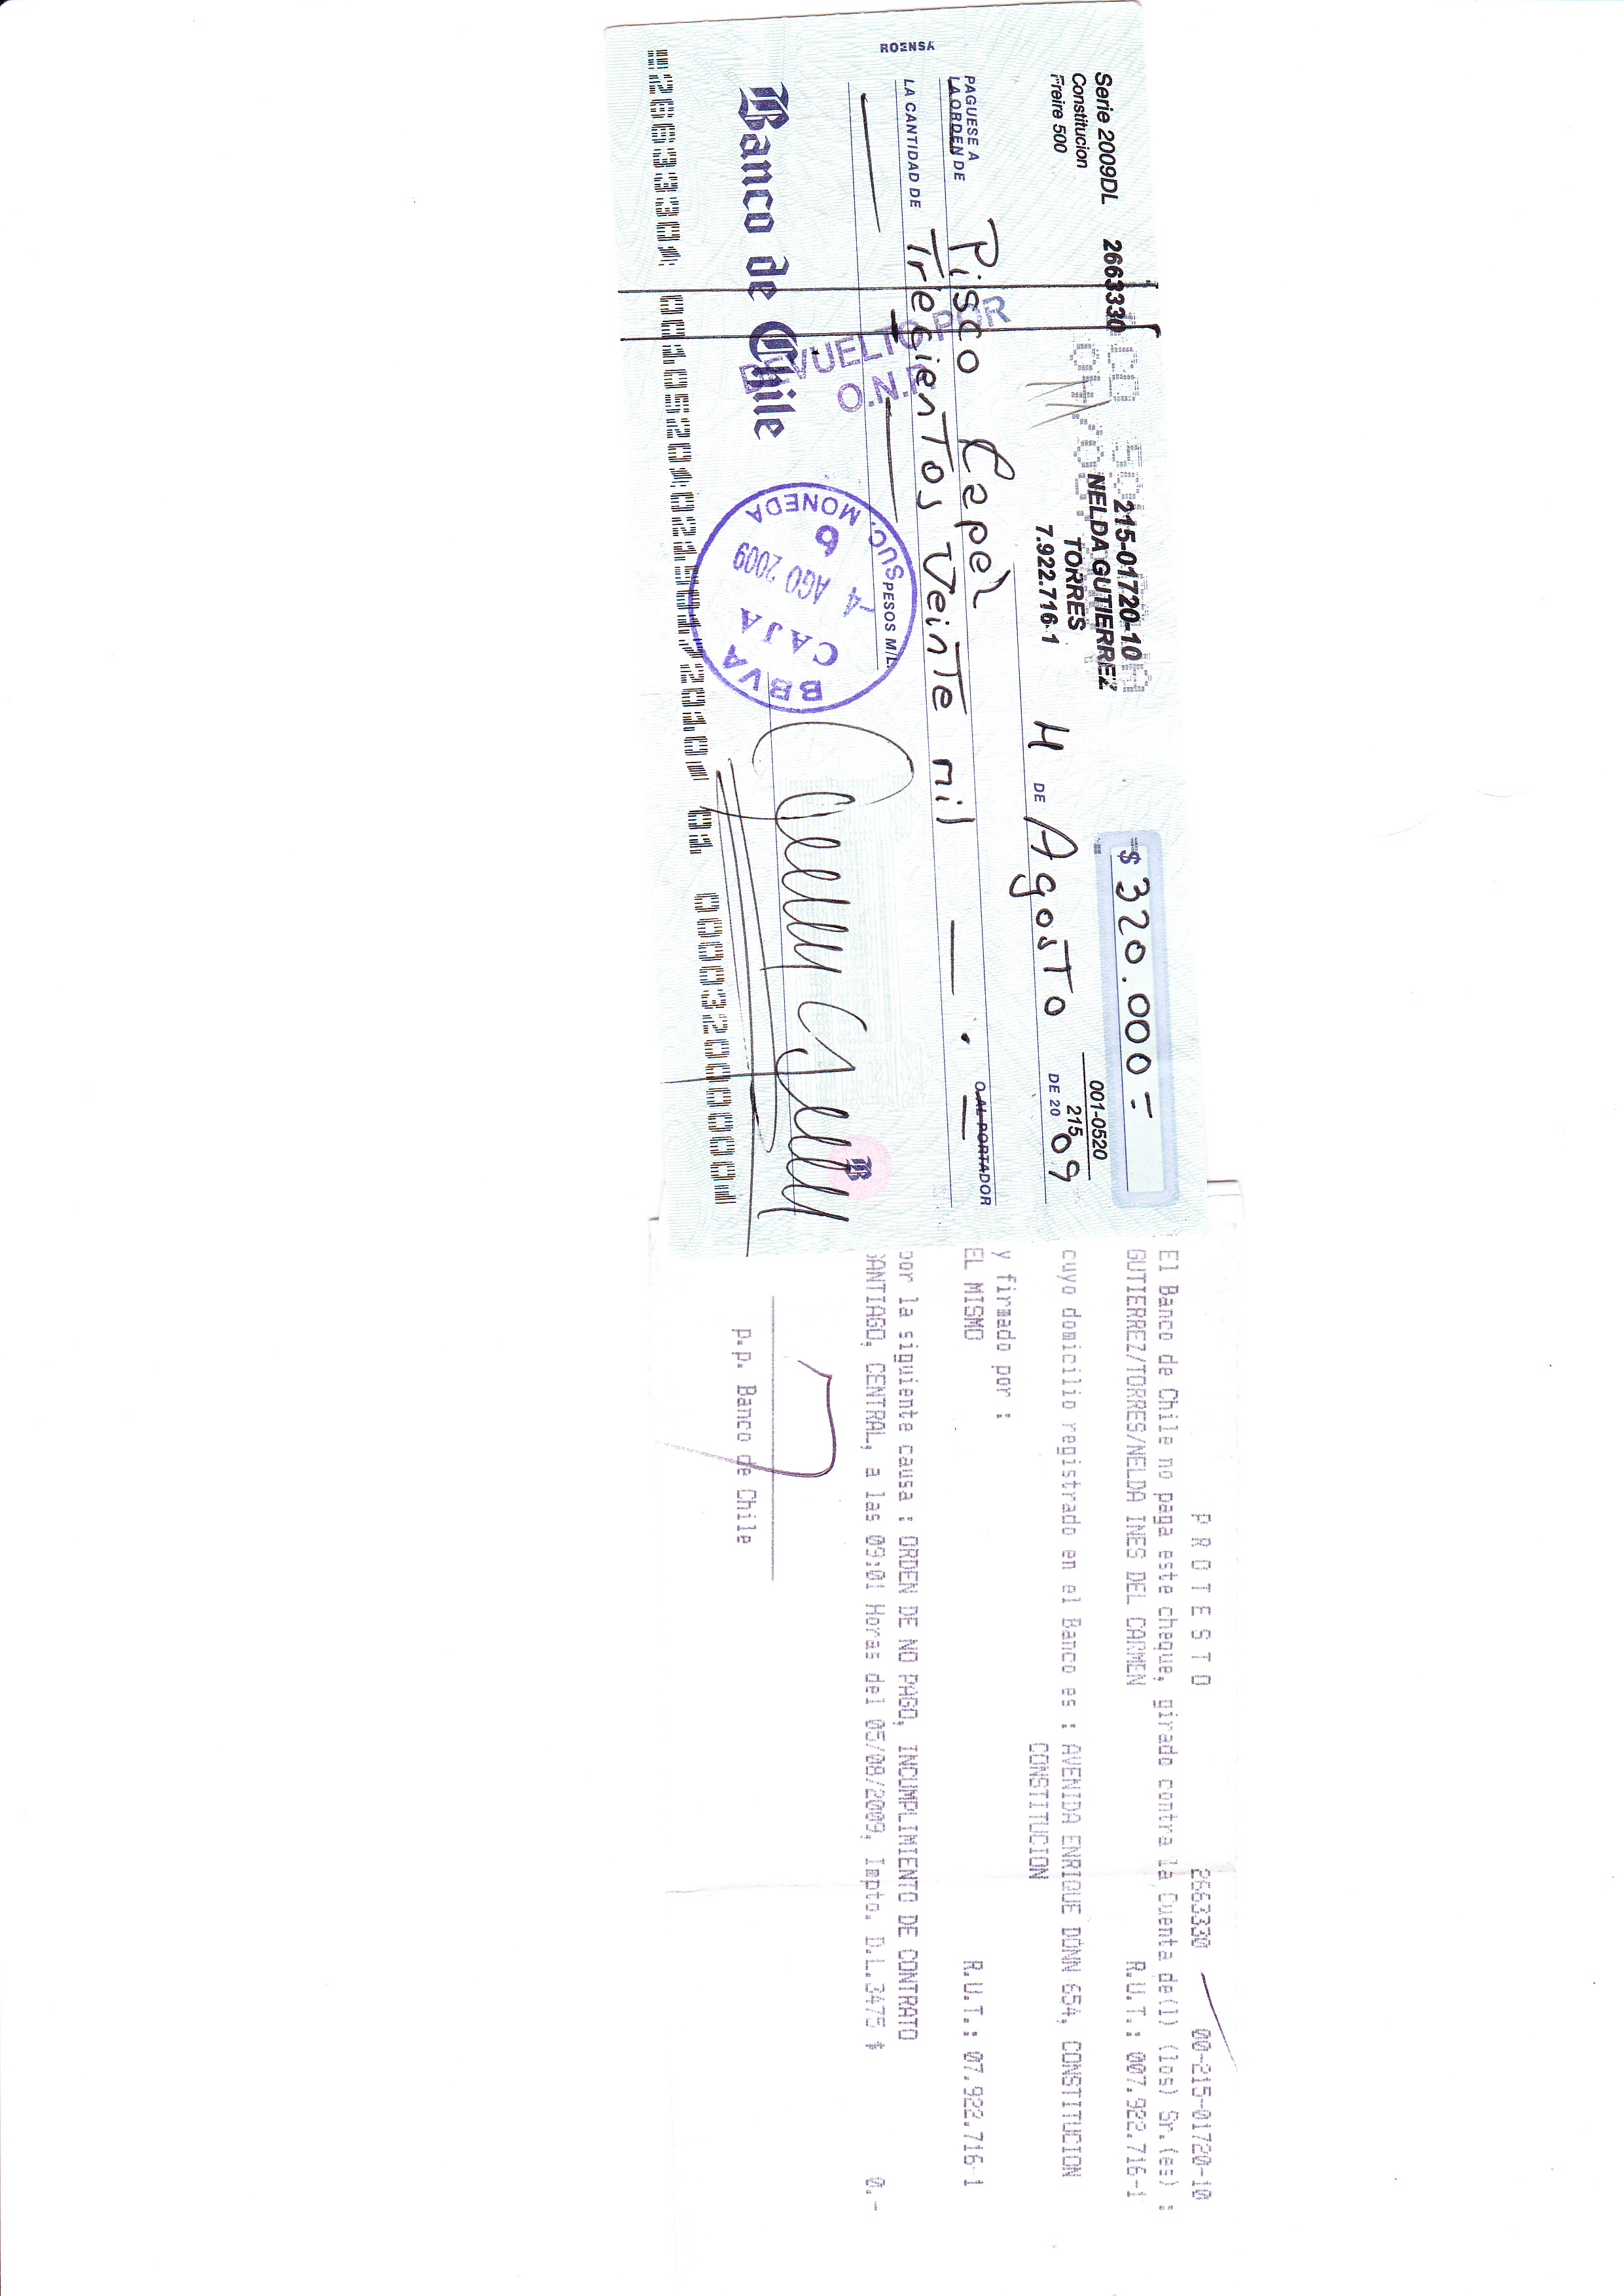 Serie 2009DL 2663330
Constitucion
Freire 500
215-01720-10
NELDA GUTIERREZ
TORRES
7.922.716-1
$ 320.000-
001-0520
215
4 DE Agosto DE 20 09
PAGUESE A
LA ORDEN DE Pisco Capel O AL PORTADOR
LA CANTIDAD DE Trecientos Veinte mil
PESOS M/L.
ROENSA
DEVUELTO POR
O.N.P
Banco de Chile
SUC. MONEDA
6
-4 AGO 2009
CAJA
BBVA
B
P R O T E S T O 2663330 00-215-01720-10
El Banco de Chile no paga este cheque, girado contra la Cuenta de(l) (los) Sr.(es) :
GUTIERREZ/TORRES/NELDA INES DEL CARMEN R.U.T.: 007.922.716-1
cuyo domicilio registrado en el Banco es : AVENIDA ENRIQUE DONN 654, CONSTITUCION
CONSTITUCION
y firmado por :
EL MISMO R.U.T.: 07.922.716-1
por la siguiente causa : ORDEN DE NO PAGO, INCUMPLIMIENTO DE CONTRATO
SANTIAGO, CENTRAL, a las 09:01 Horas del 05/08/2009, Impto. D.L.3475 $ 0.-
p.p. Banco de Chile